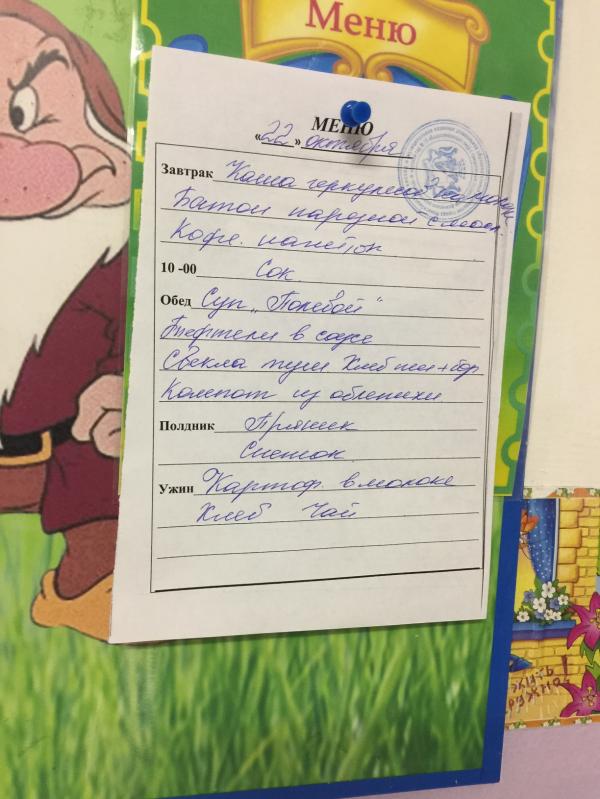 Меню
МЕНЮ
«22» октября
Завтрак Каша геркулесовая
Батон народной с маслом
Кофе. напиток
10 -00 Сок
Обед Суп „Полевой"
Тефтели в соусе
Свекла туш Хлеб пш+бор
Компот из облепихи
Полдник Пряник
Снежок
Ужин Картоф. в молоке
Хлеб Чай